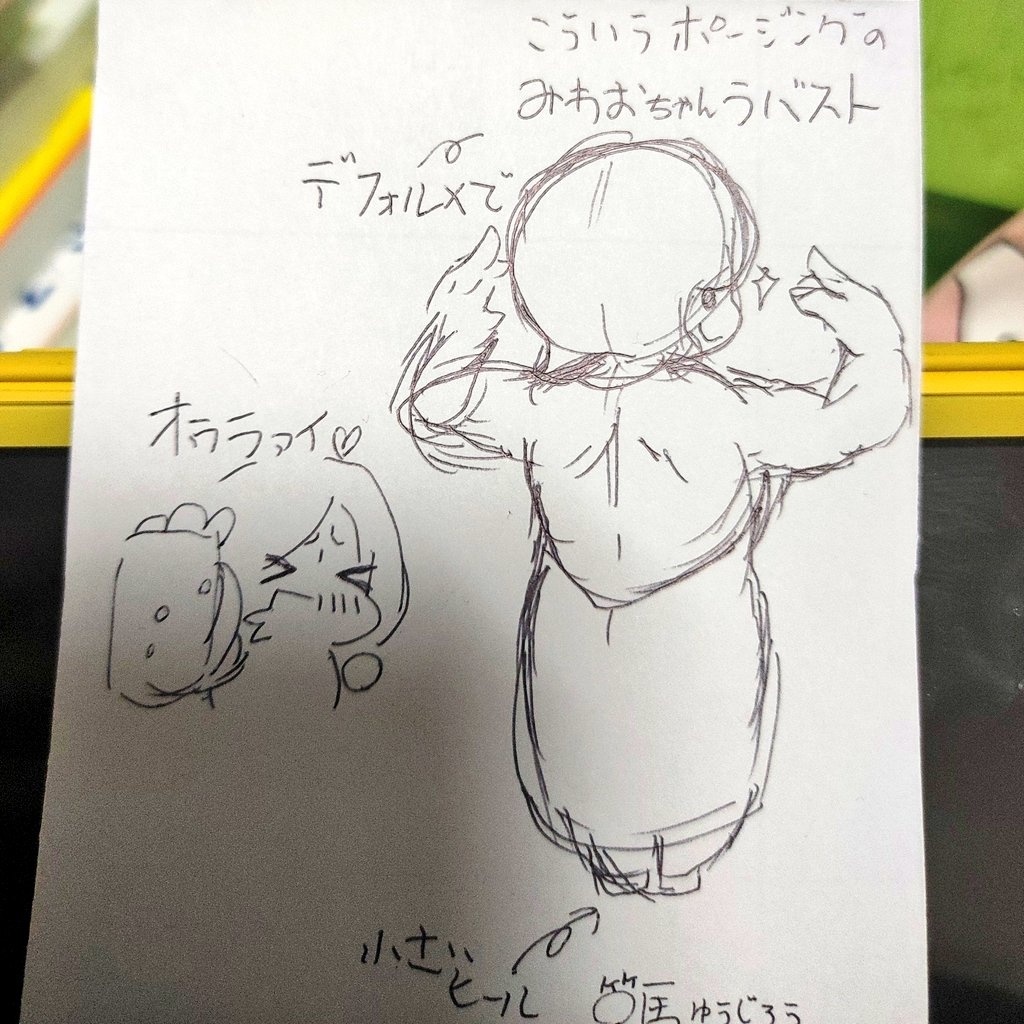 こういうポージングの
みわおちゃんラバスト
デフォルメで
オララァイ♡
小さい
ヒール
範馬ゆうじろう